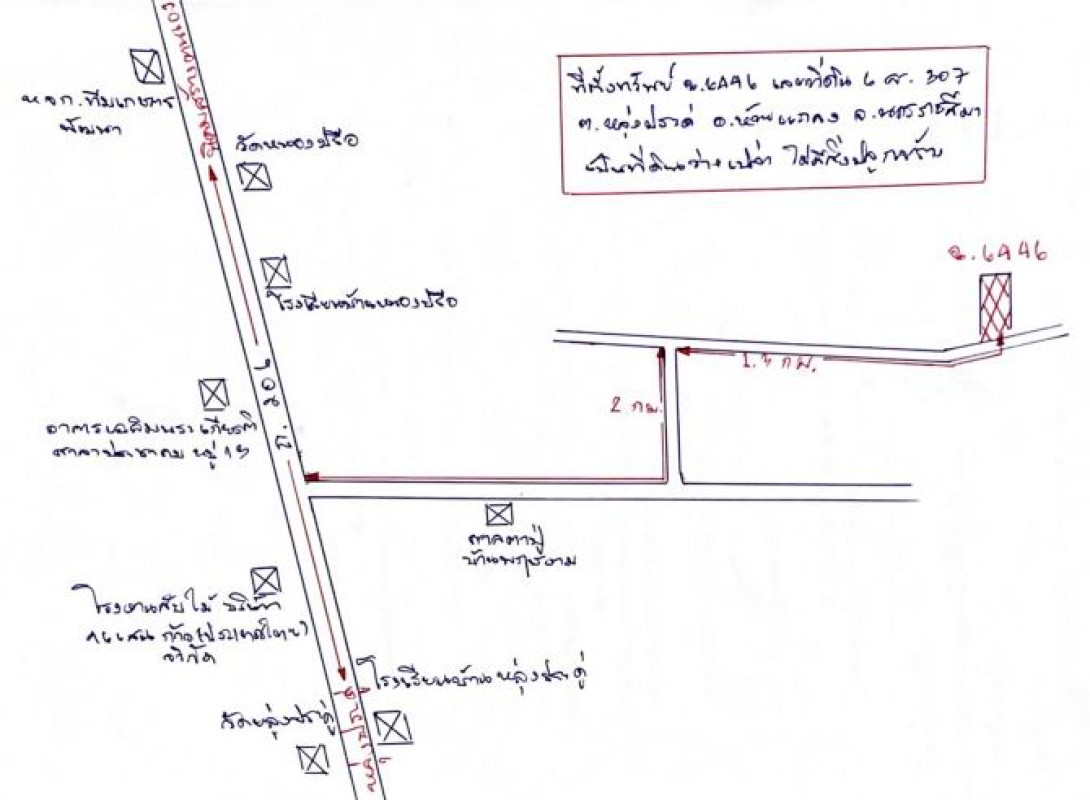 หจก.ทีมเกษตร
พัฒนา
วัดหนองปรือ
โรงเรียนบ้านหนองปรือ
ที่ตั้งทรัพย์ ฉ. เลขที่ดิน 6 ส. 307
ต.หลุ่งประดู่ อ.ห้วยแถลง จ.นครราชสีมา
เป็นที่ดินว่างเปล่า ไม่มีสิ่งปลูกสร้าง
1.3 กม.
2 กม.
อาคารเฉลิมพระเกียรติ
ศาลาประชาคม หมู่ 13
ศาลตาปู่
บ้านพฤกษ์งาม
โรงงานสับไม้ บริษัท
(ประเทศไทย)
จำกัด
โรงเรียนบ้านหลุ่งประดู่
วัดหลุ่งประดู่
หลุ่งประดู่